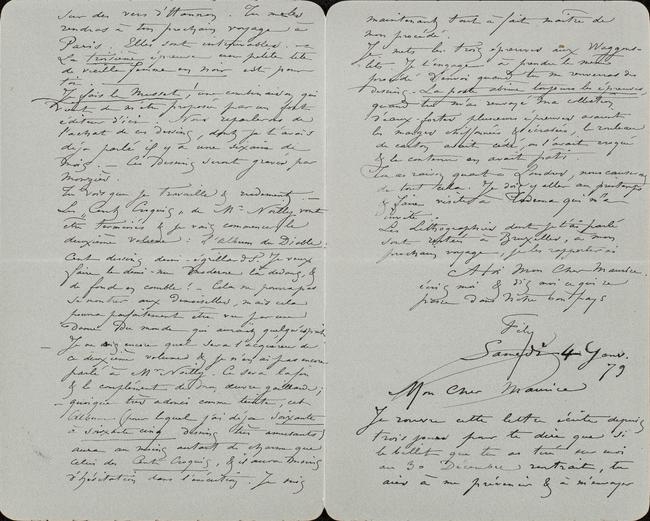 sur des vers d'Hannon. Tu me les
rendras à ton prochain voyage à
Paris. Elles sont introuvables. —
La troisième épreuve une petite tête
de vieille femme en noir est pour
toi. —
Je fais le Musset, une combinaison qui
vient de m'être proposée par un fort
éditeur d'ici. Nous reparlerons de
l'achat de ces dessins, dont je t'avais
déjà parlé il y a une dizaine de
mois. — Ces Dessins seront gravés par
Tu vois que je travaille & rudement.
Les "Cents Croquis" de Mr Noilly vont
être terminés & je vais commencer le
deuxième volume : l'Album du Diable :
Cent dessins demi-égrillards. Je veux
faire le demi-nu moderne là dedans, &
de fond en comble ! — Cela ne pourra pas
se montrer aux demoiselles, mais cela
pourra parfaitement être vu par une
Dame du monde qui aurait quelqu'esprit
— Je ne sais encore quel sera l'acquéreur de
ce deuxième volume & je n'en ai pas encore
parlé à Mr Noilly. Ce sera la fin
& le complément de mon œuvre gaillarde ;
quoique très adouci comme teinte, cet
Album (pour lequel j'ai déjà soixante
à soixante cinq dessins très amusants)
aura au moins autant de charme que
celui des Cents Croquis, & il aura moins
d'hésitation dans l'exécution. Je suis
maintenant tout à fait maître de
mon procédé.
Je mets les trois épreuves aux Waggons-
lits. Je t'engage à prendre le même
procédé d'envoi quand tu me renverras des
dessins. La poste abîme toujours les épreuves,
quand tu m'as renvoyé ma collection
d'eaux-fortes plusieurs épreuves avaient
les marges chiffonnées & écrasées, le rouleau
de carton avait cédé, on l'avait croqué
& le contenu en avait pâti.
Tu as raison quant à Londres, nous causerons
de tout cela. Je dois y aller au printemps
& faire visite à
invité.
Les Lithographies dont je t'ai parlé
sont restées à Bruxelles, à mon
prochain voyage, je les rapporterai
A toi Mon Cher Maurice.
écris moi & dis moi ce qui se
passe dans notre bon pays
Fély
Samedi 4 Janv.
79
Mon Cher Maurice
Je rouvre cette lettre écrite depuis
trois jours pour te dire que si
le billet que tu as tiré sur moi
au 30 Décembre rentrait, tu
aies à me prévenir & à m'envoyer